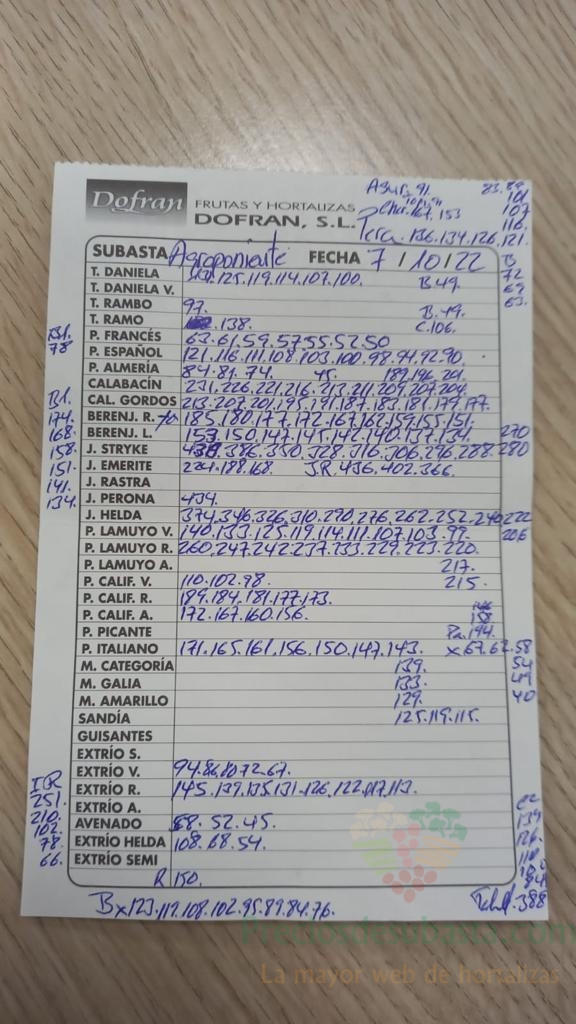 Dofran FRUTAS Y HORTALIZAS
DOFRAN, S.L.
83.89
101
107
116
Pera. 136.134.126.121.
SUBASTA Agroponiente FECHA 7/10/22
B
72
69
63.
T. DANIELA 125.119.114.107.100. B.49.
T. DANIELA V.
T. RAMBO 97. B.49.
T. RAMO 138. C.106.
P. FRANCÉS 63.61.59.57.55.52.50
B1.
78
P. ESPAÑOL 121.116.111.108.103.100.98.94.92.90.
P. ALMERÍA 84.81.74. 45. 189.196.201.
CALABACÍN 231.226.221.216.213.211.209.207.204.
CAL. GORDOS 213.207.201.195.191.187.183.181.179.177.
BERENJ. R. 185.180.177.172.167.162.159.155.151.
BERENJ. L. 153.150.147.145.142.140.137.134. 270
B1.
174.
168.
158.
151.
141.
134.
J. STRYKE 386.350.328.316.306.296.288.280
J. EMERITE 224.188.168. JR.436.402.366.
J. RASTRA
J. PERONA 434.
J. HELDA 374.346.326.310.290.276.262.252.240.222
206
P. LAMUYO V. 140.133.125.119.114.111.107.103.99.
P. LAMUYO R. 260.247.242.237.233.229.223.220.
P. LAMUYO A. 217.
P. CALIF. V. 110.102.98. 215.
P. CALIF. R. 189.184.181.177.173.
P. CALIF. A. 172.167.160.156.
P. PICANTE Pa.194.
P. ITALIANO 171.165.161.156.150.147.143. x67.62.58
54
49
40
M. CATEGORÍA 139.
M. GALIA 133.
M. AMARILLO 129.
SANDÍA 125.119.115.
GUISANTES
EXTRÍO S.
EXTRÍO V. 94.86.80.72.67.
EXTRÍO R. 145.139.135.131.126.122.117.113.
EXTRÍO A.
AVENADO 68.52.45.
EXTRÍO HELDA 108.68.54.
EXTRÍO SEMI
IR
251.
210.
102.
78.
66.
139
126.
R 150.
Bx123.112.108.102.95.89.84.76.
388
Preciosdesubasta.com
La mayor web de hortalizas